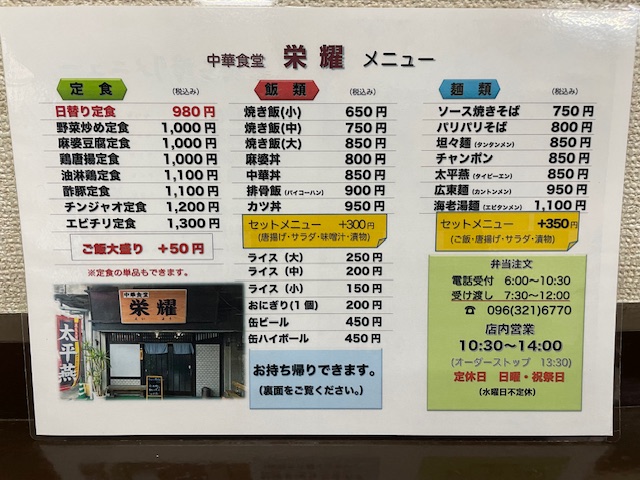 中華食堂 栄耀 メニュー
定食 (税込み)
日替り定食 980円
野菜炒め定食 1,000円
麻婆豆腐定食 1,000円
鶏唐揚定食 1,000円
油淋鶏定食 1,100円
酢豚定食 1,100円
チンジャオ定食 1,200円
エビチリ定食 1,300円
ご飯大盛り +50円
※定食の単品もできます。
中華食堂
栄耀
太平燕
飯類 (税込み)
焼き飯(小) 650円
焼き飯(中) 750円
焼き飯(大) 850円
麻婆丼 800円
中華丼 850円
排骨飯(パイコーハン) 900円
カツ丼 950円
セットメニュー +300円
(唐揚げ・サラダ・味噌汁・漬物)
ライス(大) 250円
ライス(中) 200円
ライス(小) 150円
おにぎり(1個) 200円
缶ビール 450円
缶ハイボール 450円
お持ち帰りできます。
(裏面をご覧ください。)
麺類 (税込み)
ソース焼きそば 750円
パリパリそば 800円
坦々麺(タンタンメン) 850円
チャンポン 850円
太平燕(タイピーエン) 850円
広東麺(カントンメン) 950円
海老湯麺(エビタンメン) 1,100円
セットメニュー +350円
(ご飯・唐揚げ・サラダ・漬物)
弁当注文
電話受付 6:00〜10:30
受け渡し 7:30〜12:00
☎ 096(321)6770
店内営業
10:30〜14:00
(オーダーストップ 13:30)
定休日 日曜・祝祭日
(水曜日不定休)